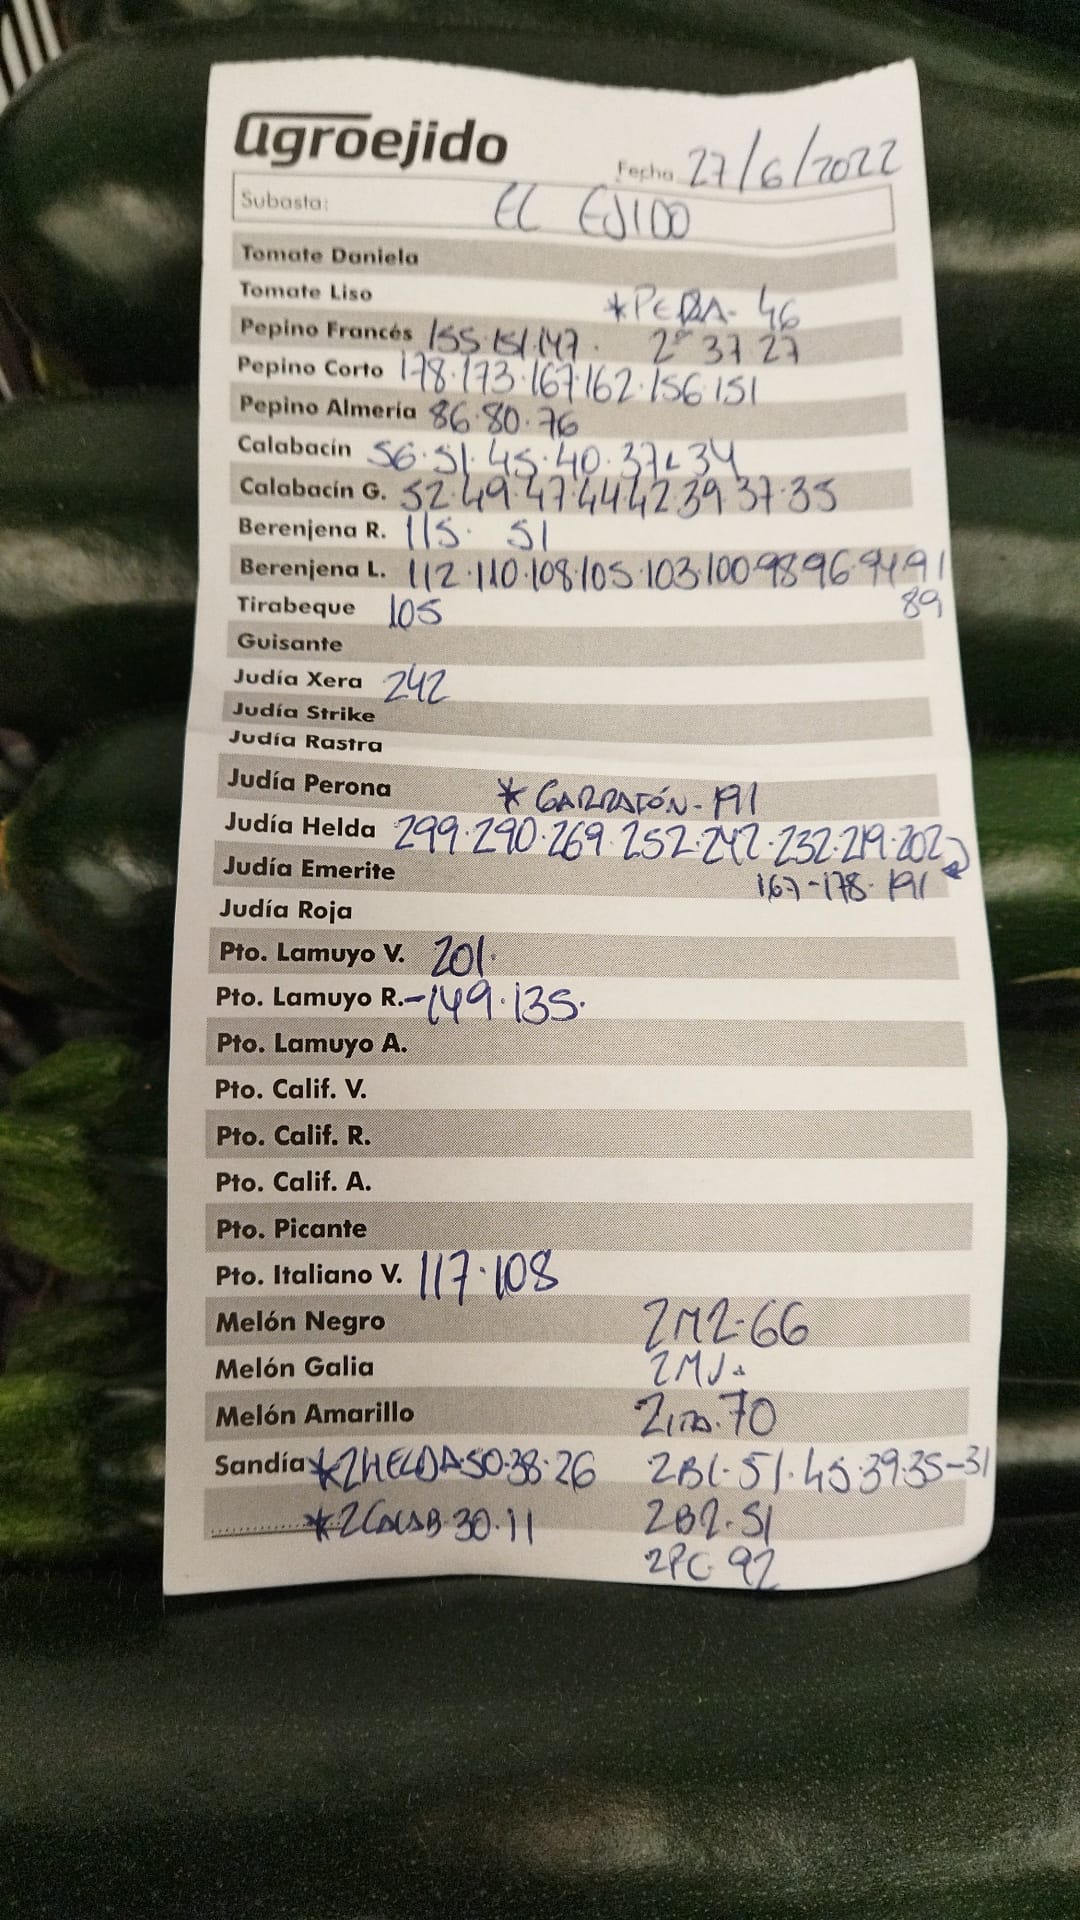 agroejido
Fecha 27/6/2022
Subasta: EL EJIDO
Tomate Daniela
Tomate Liso *PERA- 46
Pepino Francés 155·151·147· 2ª 37 27
Pepino Corto 178·173·167·162·156·151
Pepino Almería 86·80·76
Calabacín 56·51·45·40·37 34
Calabacín G. 52·49·47·44·42·39·37·35
Berenjena R. 115· 51
Berenjena L. 112·110·108·105·103·100·98·96·94·91
89
Tirabeque 105
Guisante
Judía Xera 242
Judía Strike
Judía Rastra
Judía Perona * GARRAFÓN-191
Judía Helda 299·290·269·252·242·232·219·202
Judía Emerite 167-178·191
Judía Roja
Pto. Lamuyo V. 201·
Pto. Lamuyo R.-149·135·
Pto. Lamuyo A.
Pto. Calif. V.
Pto. Calif. R.
Pto. Calif. A.
Pto. Picante
Pto. Italiano V. 117·108
Melón Negro 2M2-66
Melón Galia
Melón Amarillo 70
Sandía *2HELDA·50·38·26 2BL·51·45·39·35-31
*2CALAB·30·11 2B2·51
2PC·92